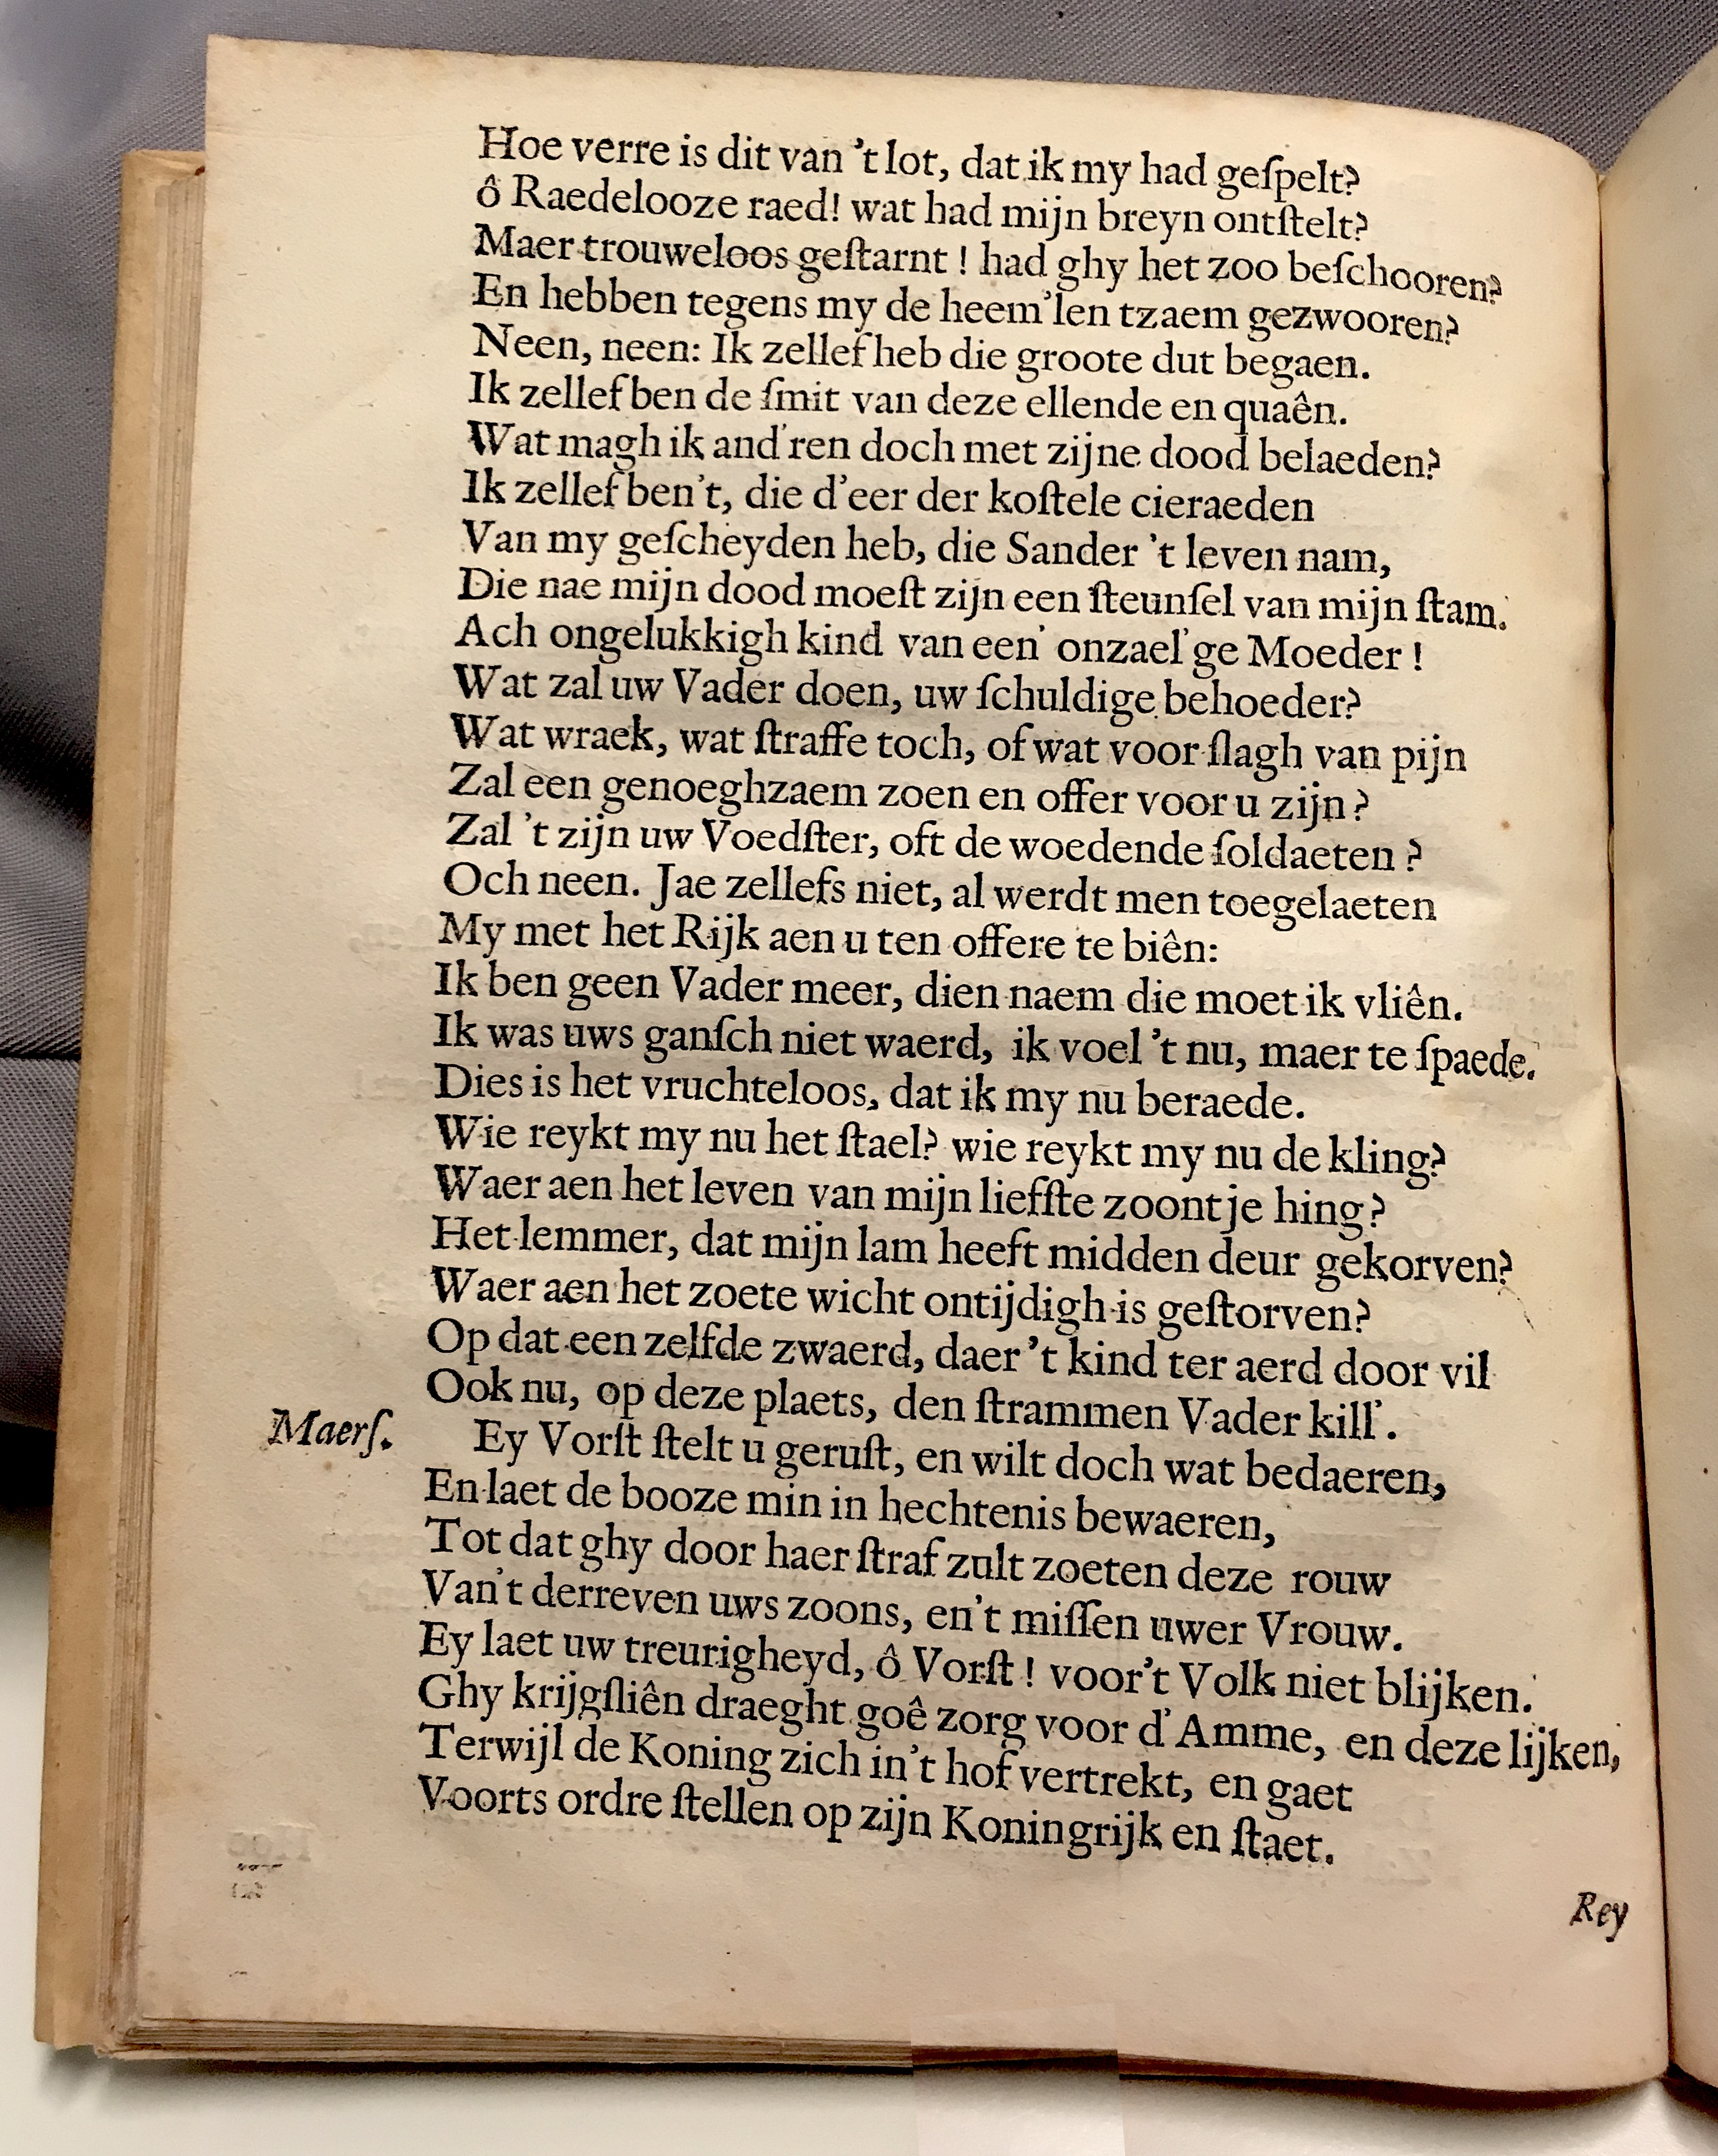 Hoe verre is dit van 't lot, dat ik my had geſpelt?
ô Raedelooze raed! wat had mijn breyn ontſtelt?
Maer trouweloos geſtarnt! had ghy het zoo beſchooren?
En hebben tegens my de heem'len tzaem gezwooren?
Neen, neen: Ik zellef heb die groote dut begaen.
Ik zellef ben de ſmit van deze ellende en quaên.
Wat magh ik and'ren doch met zijne dood belaeden?
Ik zellef ben't, die d'eer der koſtele cieraeden
Van my geſcheyden heb, die Sander 't leven nam,
Die nae mijn dood moeſt zijn een ſteunſel van mijn ſtam.
Ach ongelukkigh kind van een' onzael'ge Moeder!
Wat zal uw Vader doen, uw ſchuldige behoeder?
Wat wraek, wat ſtraffe toch, of wat voor ſlagh van pijn
Zal een genoeghzaem zoen en offer voor u zijn?
Zal 't zijn uw Voedſter, oft de woedende ſoldaeten?
Och neen. Jae zellefs niet, al werdt men toegelaeten
My met het Rijk aen u ten offere te biên:
Ik ben geen Vader meer, dien naem die moet ik vliên.
Ik was uws ganſch niet waerd, ik voel 't nu, maer te ſpaede.
Dies is het vruchteloos, dat ik my nu beraede.
Wie reykt my nu het ſtael? wie reykt my nu de kling?
Waer aen het leven van mijn liefſte zoontje hing?
Het lemmer, dat mijn lam heeft midden deur gekorven?
Waer aen het zoete wicht ontijdigh is geſtorven?
Op dat een zelfde zwaerd, daer 't kind ter aerd door vil
Ook nu, op deze plaets, den ſtrammen Vader kill'.
Maerſ. Ey Vorſt ſtelt u geruſt, en wilt doch wat bedaeren,
En laet de booze min in hechtenis bewaeren,
Tot dat ghy door haer ſtraf zult zoeten deze rouw
Van't derreven uws zoons, en't miſſen uwer Vrouw.
Ey laet uw treurigheyd, ô Vorſt! voor't Volk niet blijken.
Ghy krijgſliên draeght goê zorg voor d'Amme, en deze lijken,
Terwijl de Koning zich in't hof vertrekt, en gaet
Voorts ordre ſtellen op zijn Koningrijk en ſtaet.
Rey